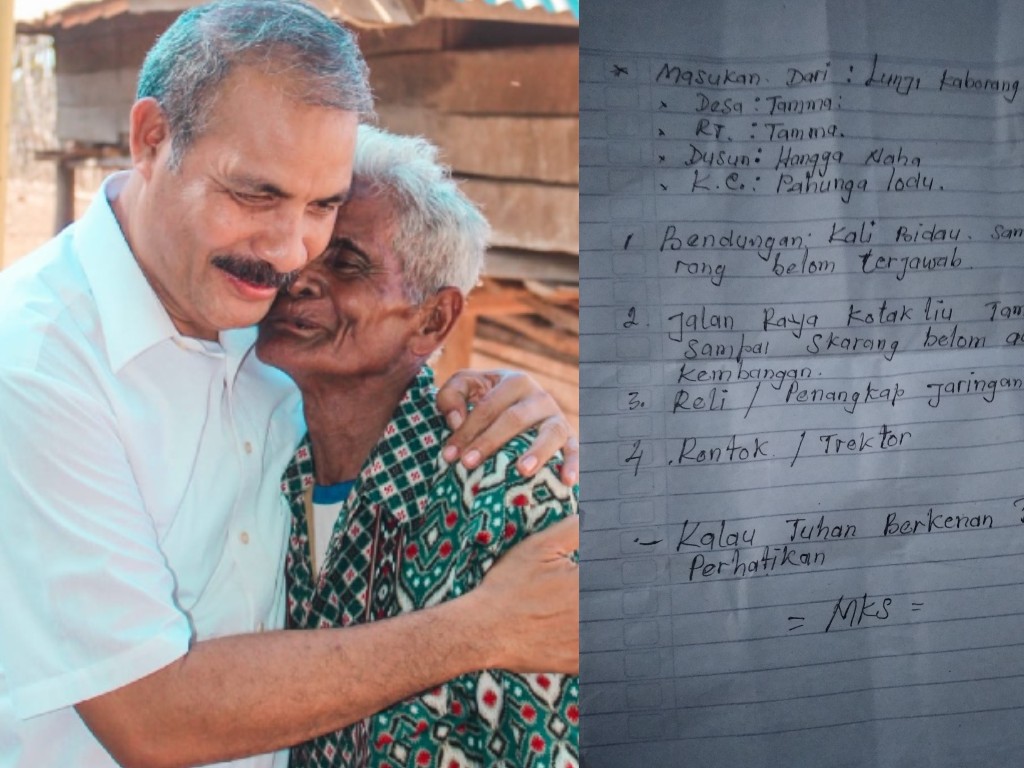 * Masukan. Dari : Lunji Kaborang
* Desa : Tamma.
* RT. : Tamma.
* Dusun : Hangga Naha
* K.C. : Pahunga lodu.
1 Bendungan; Kali Bidau. Sam
rang belom terjawab.
2. Jalan Raya Kotak liu Tam
Sampai Skarang belom a
kembangan.
3. Reli / Penangkap jaringan
4. Rontok / Trektor
- Kalau Tuhan Berkenan
Perhatikan
= MKS =